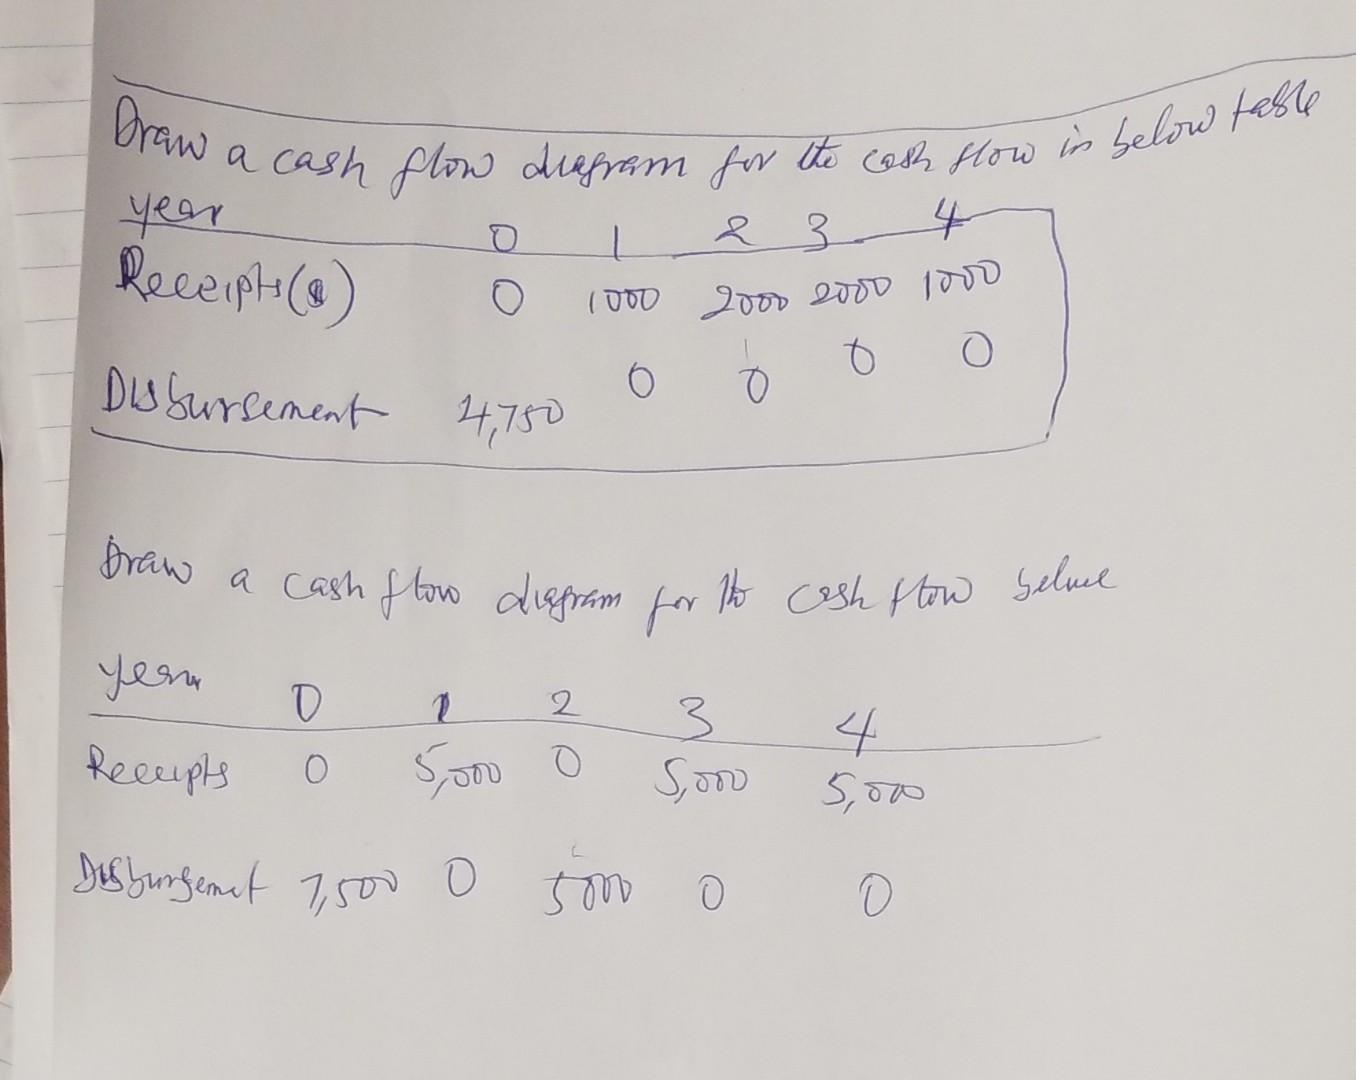 Draw a cash flow diagram for the cash flow in below table
year 0 1 2 3 4
Receipts($) 0 1000 2000 2000 1000
Disbursement 4,750 0 0 0 0
Draw a cash flow diagram for the cash flow
year 0 1 2 3 4
Receipts 0 5,000 0 5,000 5,000
Disbursemet 7,500 0 5000 0 0